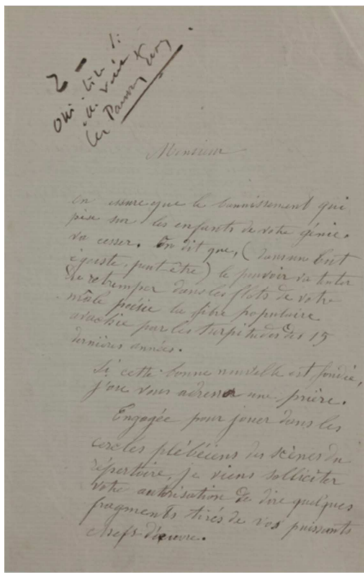 2 —
Oui
Monsieur
On assure que le bannissement qui
pèse sur les enfants de votre génie,
va cesser. On dit que, (dans un but
égoïste peut être) le pouvoir va tenter
de retremper dans les flots de votre
mâle poésie la fibre populaire
par les turpitudes des 19
dernières années.
Si cette bonne nouvelle est fondée,
j'ose vous adresser une prière.
Engagée pour jouer dans les
cercles plébéiens des scènes du
répertoire, je viens solliciter
votre autorisation de dire quelques
fragments tirés de vos puissants
chefs d'œuvre.